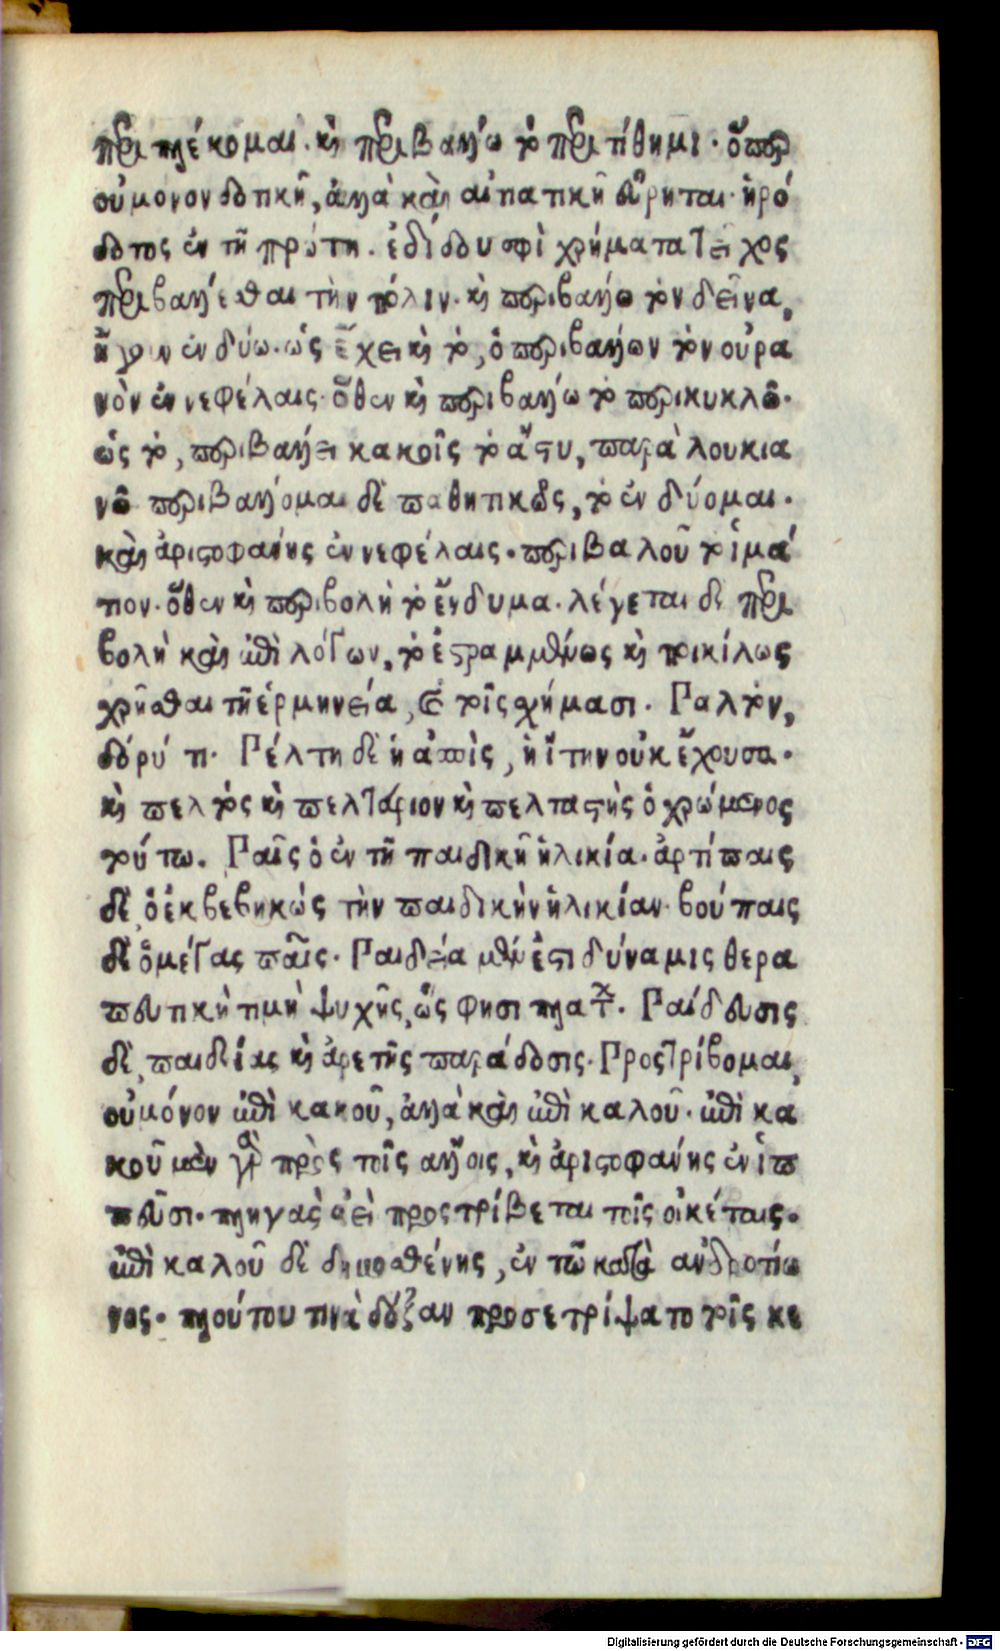 περιπλέκομαι. καὶ περιβάλλω τὸ περιτίθημι. ὅπερ
οὐ μόνον δοτικῇ, ἀλλὰ καὶ αἰτιατικῇ εὕρηται. ἡρό
δοτος ἐν τῇ πρώτῃ. ἐδίδου σφὶ χρήματα τεῖχος
περιβαλλέσθαι τὴν πόλιν. καὶ περιβάλλω τὸν δεῖνα,
ἤγουν ἐνδύω. ὡς ἔχει καὶ τὸ, ὁ περιβάλλων τὸν οὐρα
νὸν ἐν νεφέλαις. ὅθεν καὶ περιβάλλω τὸ περικυκλῶ.
ὡς τὸ, περιβάλλει κακοῖς τὸ ἄστυ, παρὰ λουκια
νῶ περιβάλλομαι δὲ παθητικῶς, τὸ ἐνδύομαι.
καὶ ἀριστοφάνης ἐν νεφέλαις. περιβαλοῦ τὸ ἱμά
τιον. ὅθεν καὶ περιβολὴ τὸ ἔνδυμα. λέγεται δὲ περι
βολὴ καὶ ἐπὶ λόγων, τὸ ἐστραμμένως καὶ ποικίλως
χρῆσθαι τῇ ἑρμηνεία, καὶ τοῖς σχήμασι. Παλτὸν,
δόρύ τι. Πέλτη δὲ ἡ ἀσπὶς, ἡ ἴτην οὐκ ἔχουσα.
καὶ πελτὸς καὶ πελτάριον καὶ πελταστὴς ὁ χρώμενος
τούτω. Παῖς ὁ ἐν τῇ παιδικῇ ἡλικία. ἀρτίπαις
δὲ ὁ ἐκβεβηκὼς τὴν παιδικὴν ἡλικίαν. βούπαις
δὲ ὁ μέγας παῖς. Παιδεία μέν ἐστι δύναμις θερα
πευτικὴ τιμὴ ψυχῆς, ὥς φησι πλάτ. Παίδευσις
δὲ, παιδείας καὶ ἀρετῆς παράδοσις. Προστρίβομαι,
οὐ μόνον ἐπὶ κακοῦ, ἀλλὰ καὶ ἐπὶ καλοῦ. ἐπὶ κα
κοῦ μὲν γὰρ πρὸς τοῖς ἄλλοις, καὶ ἀριστοφάνης ἐν ἱπ
πεῦσι. πληγὰς ἀεὶ προστρίβεται τοῖς οἰκέταις.
ἐπὶ καλοῦ δὲ δημοσθένης, ἐν τῶ κατὰ ἀνδροτίω
νος. πλούτου τινὰ δόξαν προσετρίψατο τοῖς κε
Digitalisierung gefördert durch die Deutsche Forschungsgemeinschaft - DFG